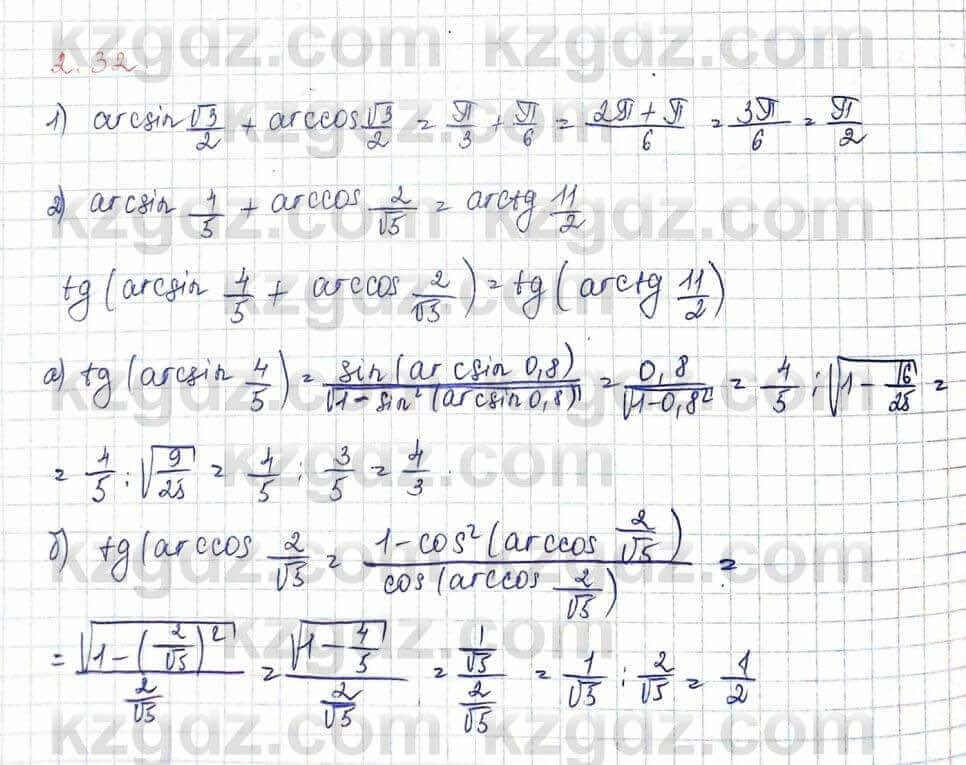 2.32
1) arcsin √3/2 + arccos √3/2 = π/3 + π/6 = (2π + π)/6 = 3π/6 = π/2
2) arcsin 4/5 + arccos 2/√5 = arctg 11/2
tg(arcsin 4/5 + arccos 2/√5) = tg(arctg 11/2)
a) tg(arcsin 4/5) = sin(arcsin 0,8)/√(1-sin²(arcsin 0,8)) = 0,8/√(1-0,8²) = 4/5 : √(1 - 16/25) =
= 4/5 : √(9/25) = 4/5 : 3/5 = 4/3
б) tg(arccos 2/√5 = (1-cos²(arccos 2/√5))/(cos(arccos 2/√5)) =
= √(1-(2/√5)²)/(2/√5) = √(1-4/5)/(2/√5) = (1/√5)/(2/√5) = 1/√5 : 2/√5 = 1/2
kzgdz.com